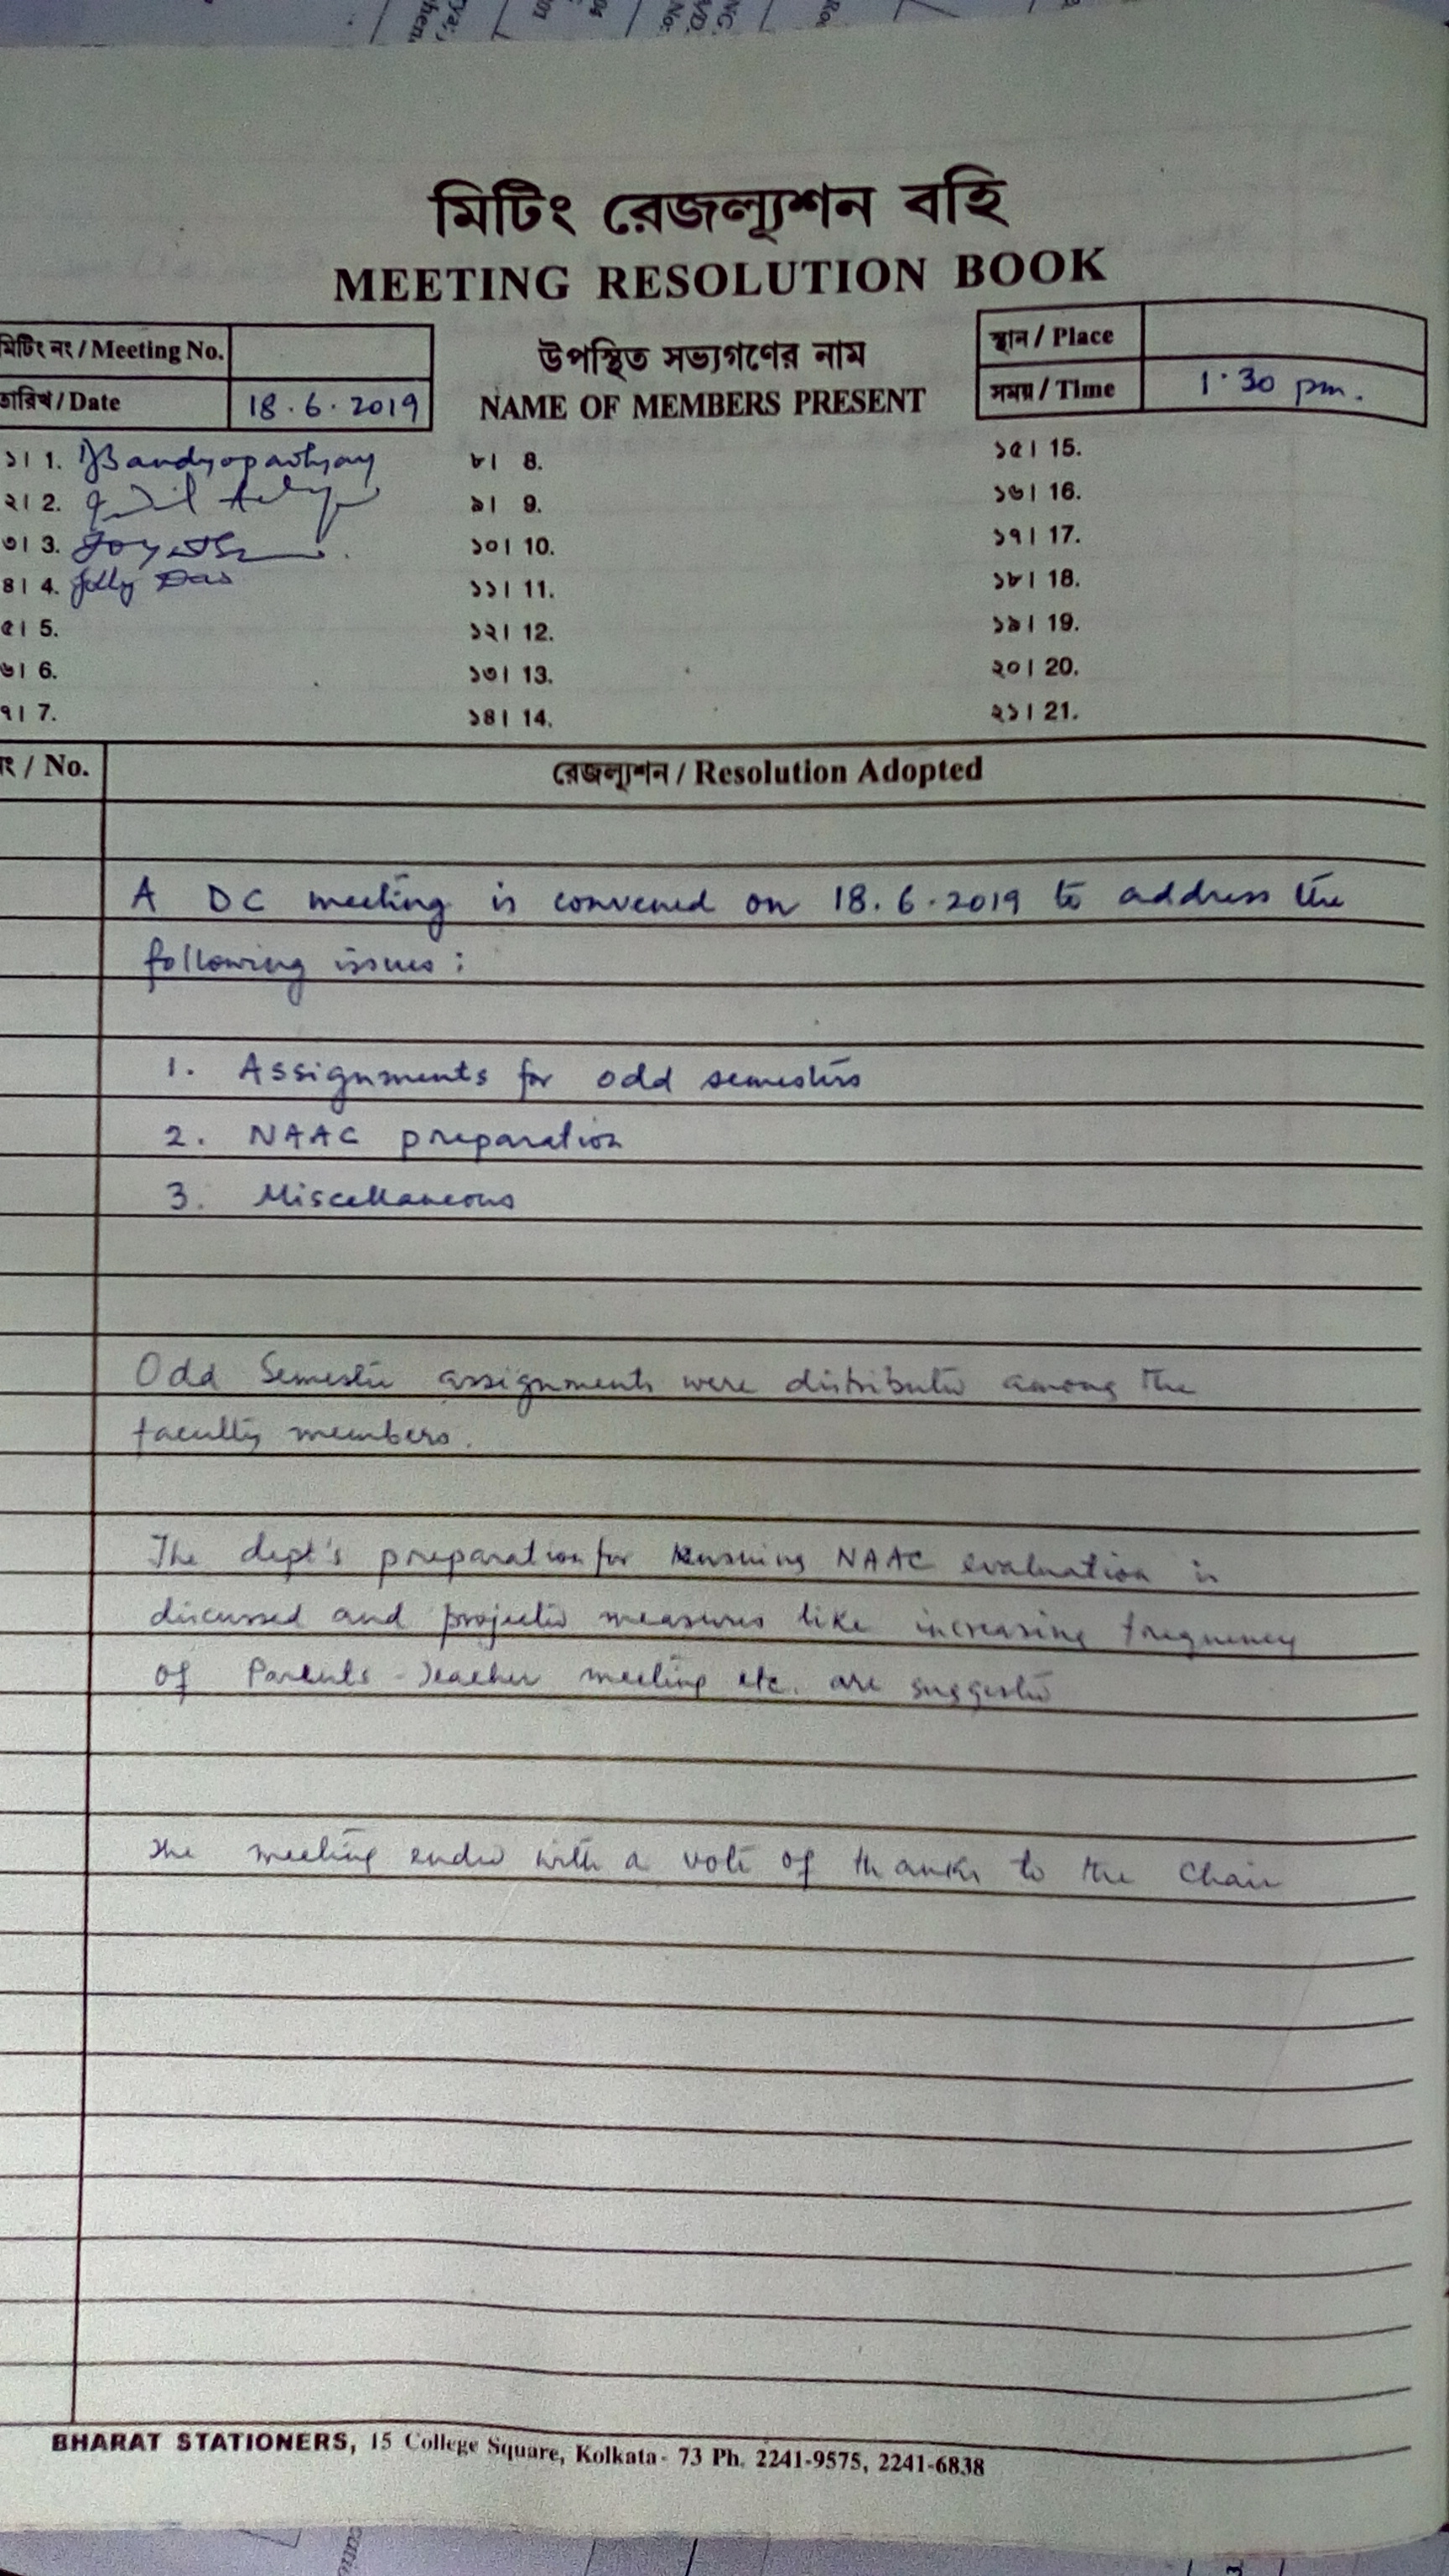 মিটিং রেজল্যুশন বহি
MEETING RESOLUTION BOOK
মিটিং নং / Meeting No.
তারিখ / Date 18.6.2019
উপস্থিত সভ্যগণের নাম
NAME OF MEMBERS PRESENT
স্থান / Place
সময় / Time 1.30 pm.
১। 1. Bandyopadhyay
২। 2.
৩। 3.
৪। 4. Jolly Das
৫। 5.
৬। 6.
৭। 7.
৮। 8.
৯। 9.
১০। 10.
১১। 11.
১২। 12.
১৩। 13.
১৪। 14.
১৫। 15.
১৬। 16.
১৭। 17.
১৮। 18.
১৯। 19.
২০। 20.
২১। 21.
নং / No. রেজল্যুশন / Resolution Adopted
A DC meeting is convened on 18.6.2019 to address the
following issues:
1. Assignments for odd semesters
2. NAAC preparation
3. Miscellaneous
Odd Semester assignments were distributed among the
faculty members.
The dept's preparation for ensuing NAAC evaluation is
discussed and projected measures like increasing frequency
of Parents-Teacher meeting etc. are suggested
The meeting ended with a vote of thanks to the Chair
BHARAT STATIONERS, 15 College Square, Kolkata - 73 Ph. 2241-9575, 2241-6838